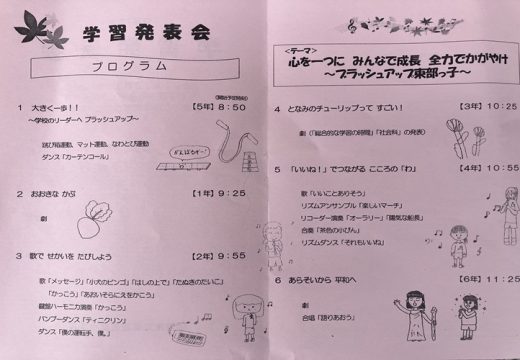 学習発表会
プログラム
(開始予定時刻)
1 大きく一歩!! 【5年】8:50
～学校のリーダーへ ブラッシュアップ～
跳び箱運動、マット運動、なわとび運動
ダンス「カーテンコール」
がんばるぞー!
2 おおきな かぶ 【1年】9:25
劇
3 歌で せかいを たびしよう 【2年】9:55
歌「メッセージ」「小犬のビンゴ」「はしの上で」「たぬきのたいこ」
「かっこう」「あおいそらにえをかこう」
鍵盤ハーモニカ演奏「かっこう」
バンブーダンス「ティニクリン」
ダンス「僕の運転手、僕。」
<テーマ>
心を一つに みんなで成長 全力でかがやけ
～ブラッシュアップ東部っ子～
4 となみのチューリップって すごい! 【3年】10:25
劇(「総合的な学習の時間」「社会科」の発表)
5 「いいね!」でつながる こころの「わ」 【4年】10:55
歌「いいことありそう」
リズムアンサンブル「楽しいマーチ」
リコーダー演奏「オーラリー」「陽気な船長」
合奏「茶色の小びん」
リズムダンス「それもいいね」
6 あらそいから 平和へ 【6年】11:25
劇
合唱「語りあおう」